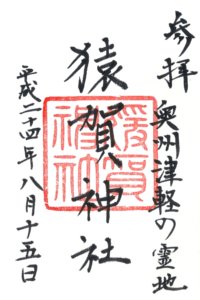 参拝
奥州津軽の霊地
猿賀神社
猿賀
神社
平成二十四年八月十五日